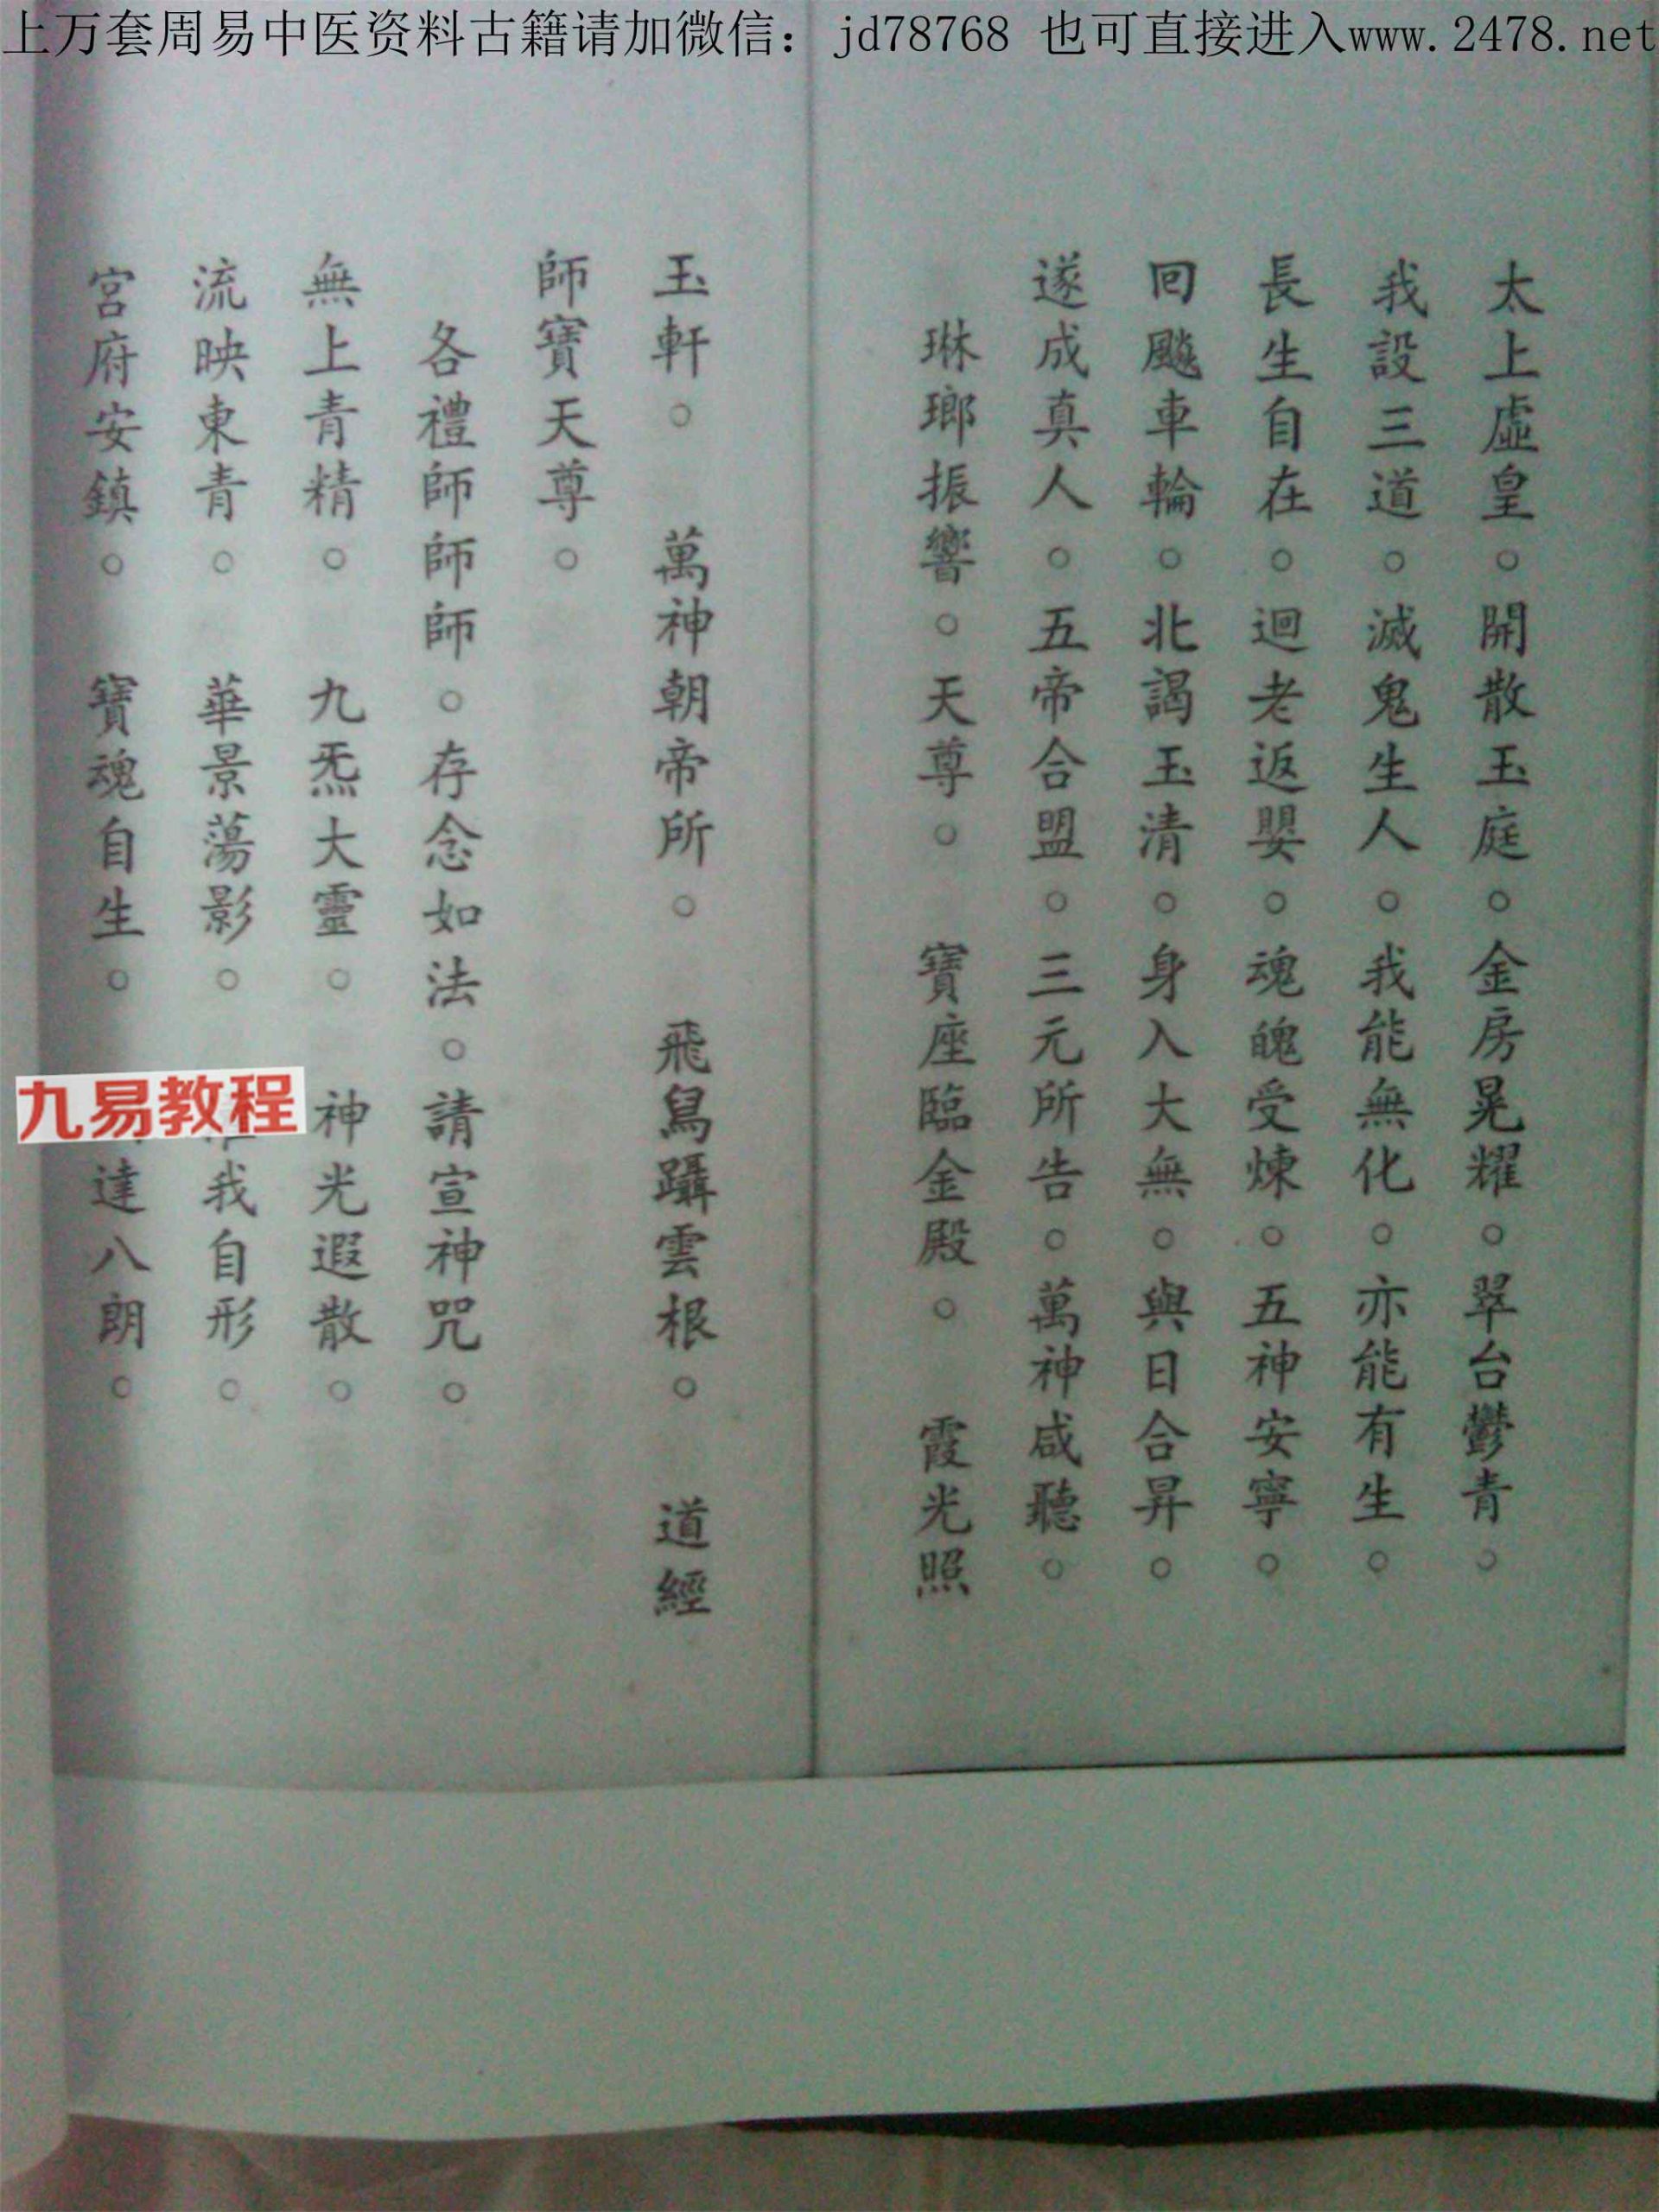 上万套周易中医资料古籍请加微信：jd78768 也可直接进入www.2478.net
太上虛皇。開散玉庭。金房晃耀。翠台鬱青。
我設三道。滅鬼生人。我能無化。亦能有生。
長生自在。迴老返嬰。魂魄受煉。五神安寧。
回飈車輪。北謁玉清。身入大無。與日合昇。
遂成真人。五帝合盟。三元所告。萬神咸聽。
琳瑯振響。天尊。 寶座臨金殿。 霞光照
玉軒。 萬神朝帝所。 飛舄躡雲根。 道經
師寶天尊。
各禮師師師。存念如法。請宣神咒。
無上青精。 九炁大靈。 神光遐散。
流映東青。 華景蕩影。 我自形。
宮府安鎮。 寶魂自生。 達八朗。
九易教程